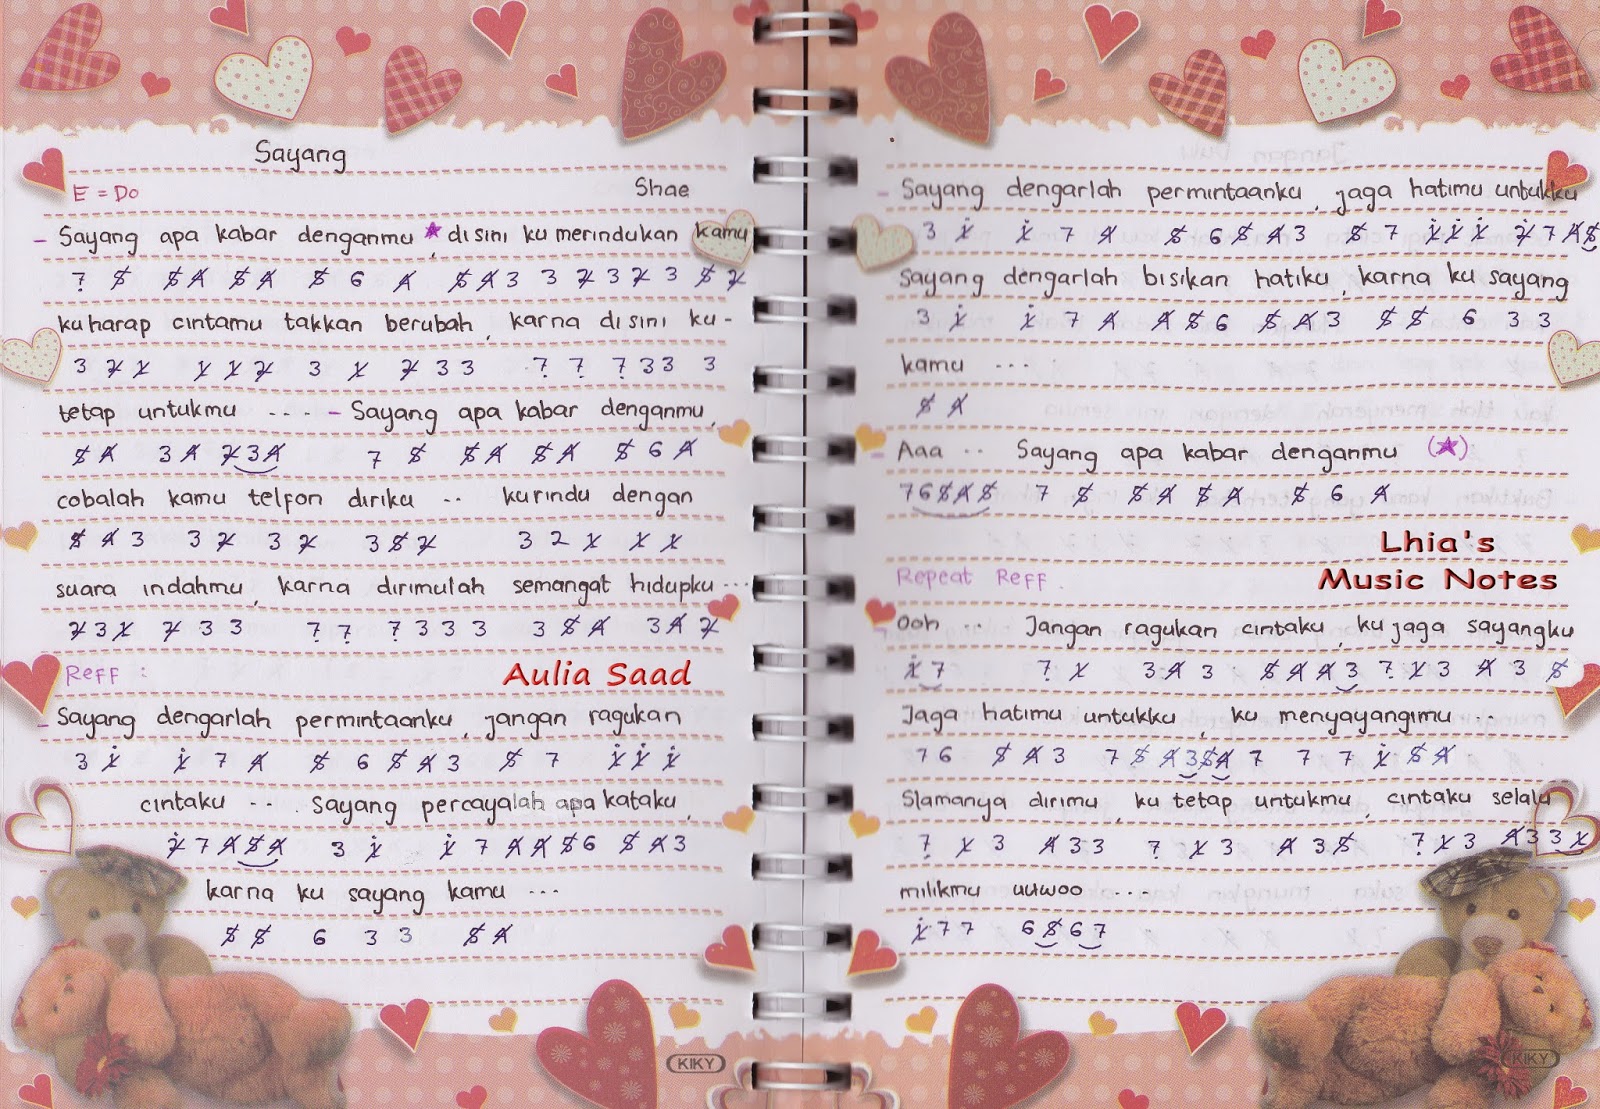 Sayang
E = Do Shae
- Sayang apa kabar denganmu ★, disini ku merindukan kamu
7 5 5 4 5 4 5 6 4 5 4 3 3 2 3 2 3 5 2
kuharap cintamu takkan berubah, karna disini ku-
3 2 1 1 1 2 3 1 2 3 3 7 7 7 3 3 3
tetap untukmu .... - Sayang apa kabar denganmu,
5 4 3 4 2 3 4 7 5 5 4 5 4 5 6 4
cobalah kamu telfon diriku .. kurindu dengan
5 4 3 3 2 3 2 3 5 2 3 2 1 1 1
suara indahmu, karna dirimulah semangat hidupku ...
2 3 1 2 3 3 7 7 7 3 3 3 3 5 4 3 4 2
Reff : Aulia Saad
- Sayang dengarlah permintaanku, jangan ragukan
3 1 1 7 4 5 6 5 4 3 5 7 1 1 1
cintaku .. . Sayang percayalah apa kataku,
2 7 4 5 4 3 1 1 7 4 4 5 6 5 4 3
karna ku sayang kamu ...
5 5 6 3 3 5 4
KIKY
- Sayang dengarlah permintaanku, jaga hatimu untukku
3 1 1 7 4 5 6 5 4 3 5 7 1 1 1 2 7 4 5
Sayang dengarlah bisikan hatiku, karna ku sayang
3 1 1 7 4 4 5 6 5 4 3 5 5 6 3 3
kamu ...
5 4
- Aaa .. Sayang apa kabar denganmu (★)
7 6 5 4 5 7 5 5 4 5 4 5 6 4
Lhia's
Music Notes
Repeat Reff.
Ooh .. Jangan ragukan cintaku, ku jaga sayangku
1 7 7 1 3 4 3 5 4 4 3 7 1 3 4 3 5
Jaga hatimu untukku, ku menyayangimu ..
7 6 5 4 3 7 5 4 3 5 4 7 7 7 1 5 4
Slamanya dirimu, ku tetap untukmu, cintaku selalu
7 1 3 4 3 3 7 1 3 4 3 5 7 1 3 4 3 3 1
milikmu uuwoo ....
1 7 7 6 5 6 7
KIKY